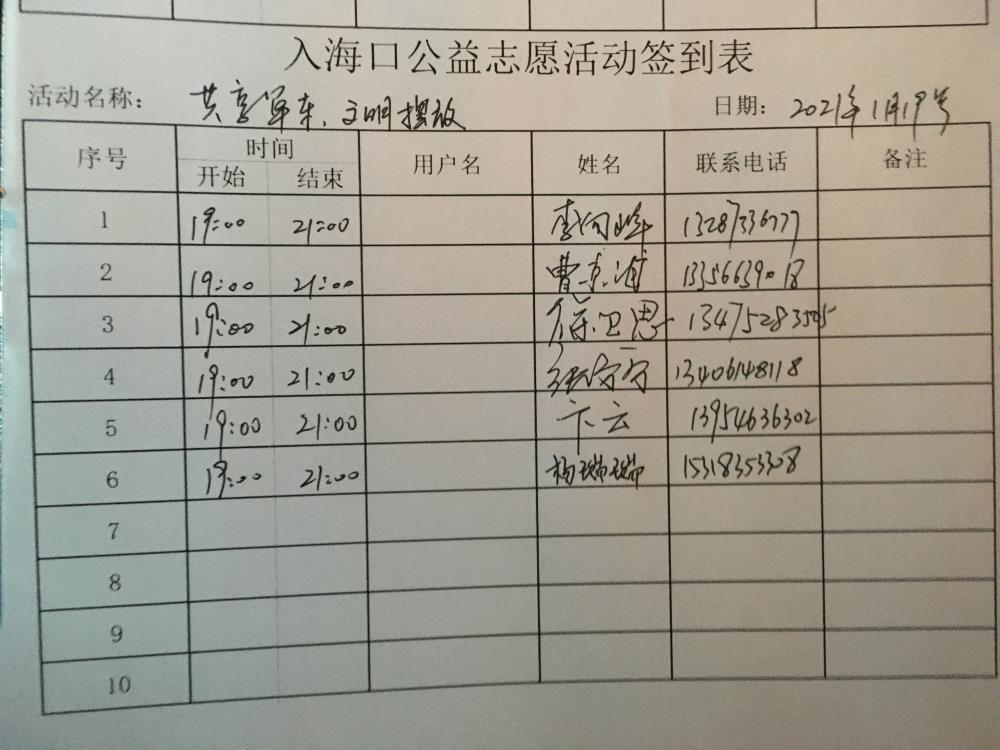 入海口公益志愿活动签到表
活动名称： 共享单车、文明摆放 日期： 2021年1月19号
序号 时间 用户名 姓名 联系电话 备注
开始 结束
1 19:00 21:00 李向峰
2 19:00 21:00 曹京 13356639018
3 19:00 21:00 卫思 13475283505
4 19:00 21:00 张宁宁 13406148118
5 19:00 21:00 卞云 13954636302
6 19:00 21:00 杨瑞瑞 15318353308
7
8
9
10